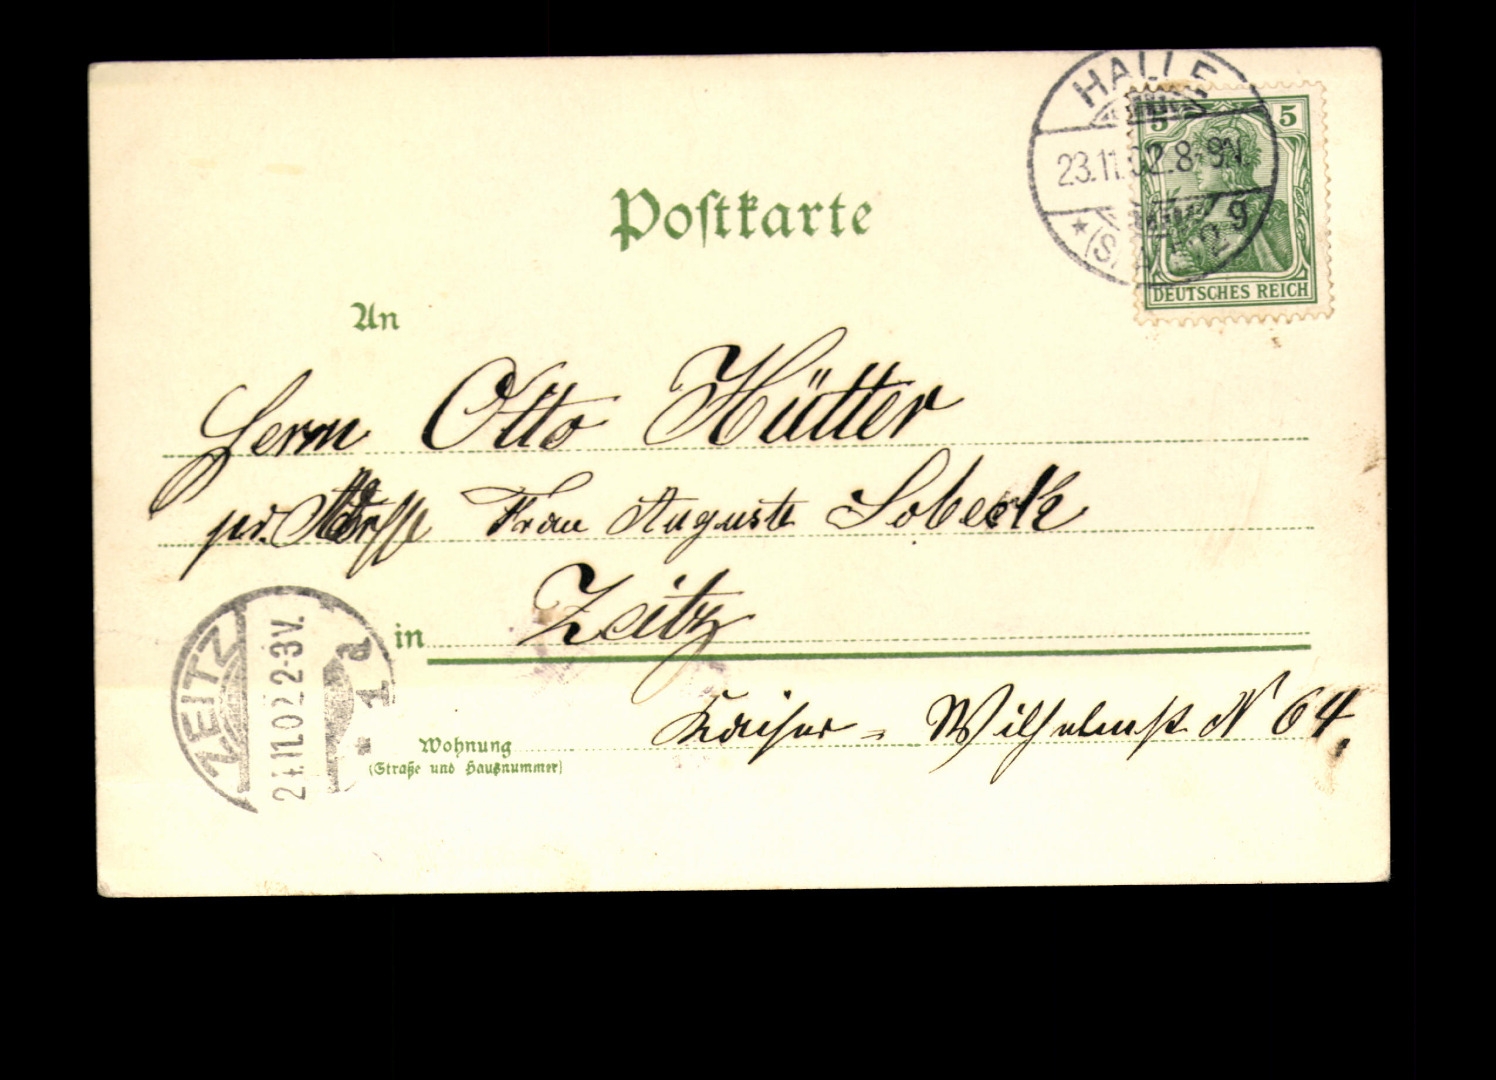 HALLE
23.11.02.8-9N.
* (S 2 g
5 5
DEUTSCHES REICH
Postkarte
An
Herrn Otto Hütter
pr. Adresse Frau Auguste Lobeck
in Zeitz
Kaiser = Wilhelmst. N 64.
Wohnung
(Straße und Hausnummer)
ZEITZ
24.11.02 2-3V.
* 1 a